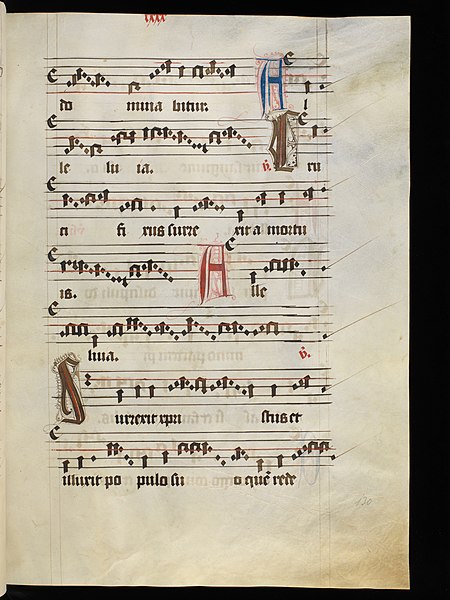 do mina bitur. A l
le lu ia. ℣. Cru
ci fi xus surre xit a mortu
is. A lle
luia. ℣.
Surrexit xpri stus et
illuxit po pulo su o quē rede
130